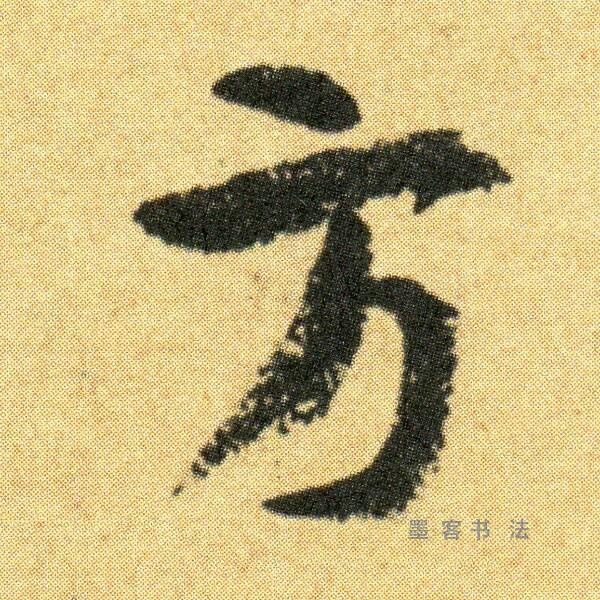 方
墨客书法